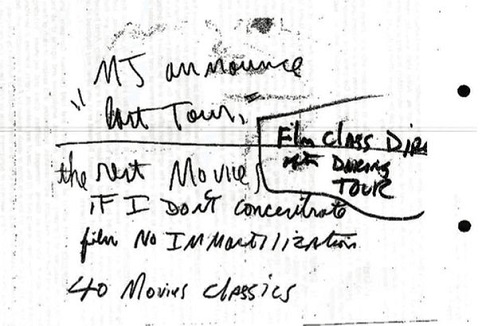 MJ announce
" last Tour,
Film Class Dire
During
TOUR
the rest Movies,
IF I Don't concentrate
film No Immortilization
40 Movies Classics